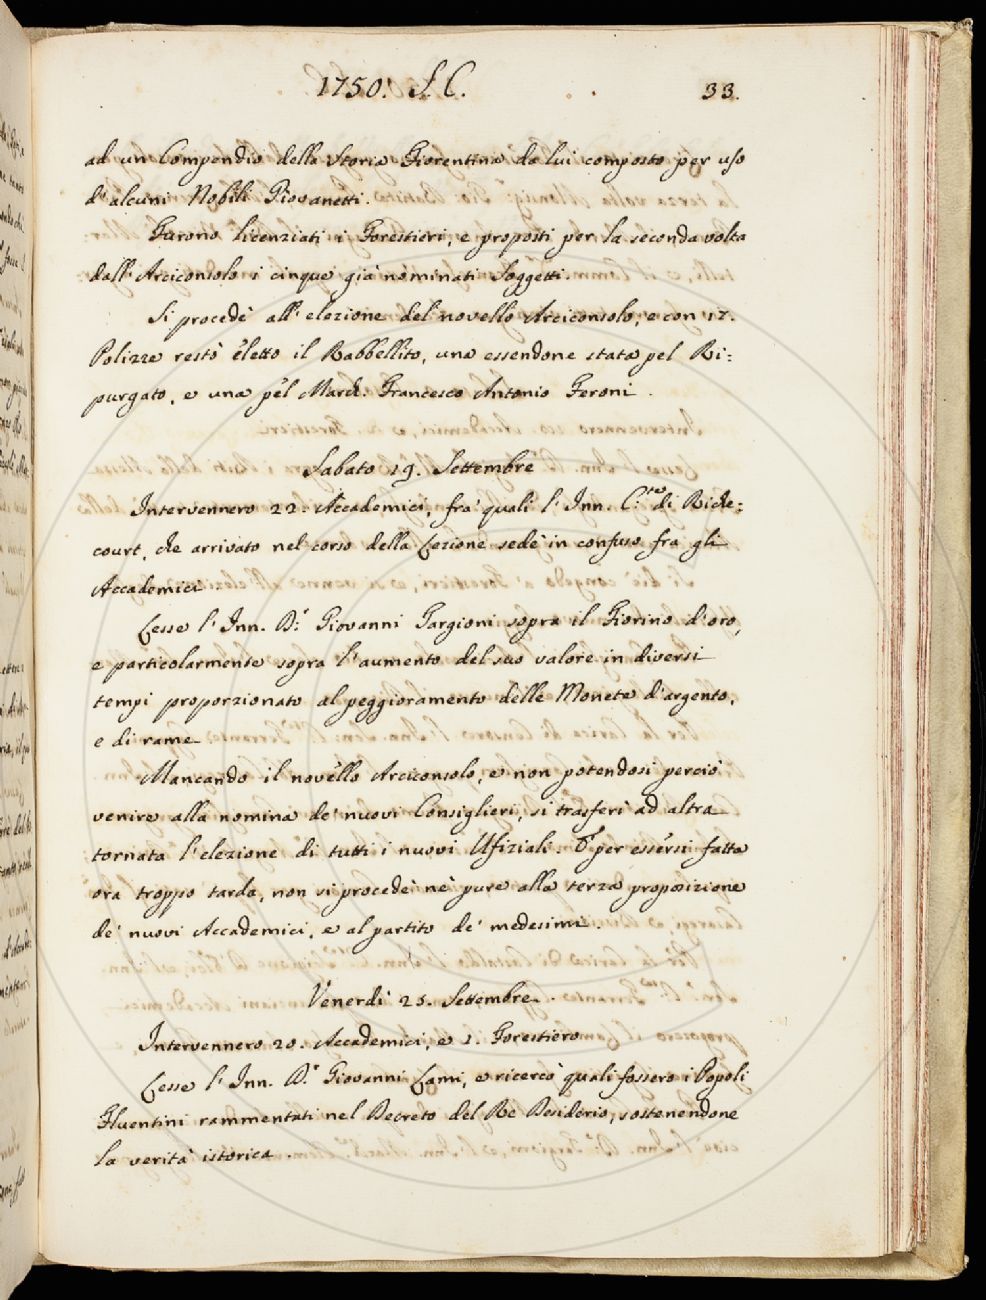 1750. S. C. 33.
ad un Compendio della Storia Fiorentina da lui composto per uso
d'alcuni Nobili Giovanetti.
Furono licenziati i Forestieri, e proposti per la seconda volta
dall'Arciconsolo i cinque già nominati Soggetti.
Si procedè all'elezione del novello Arciconsolo, e con 17.
Polizze restò eletto il Rabbellito, una essendone stata pel Ri=
purgato, e una pel March. Francesco Antonio Feroni.
Sabato 19. Settembre
Intervennero 22. Accademici, fra' quali l'Inn. C.te di Riche=
court, che arrivato nel corso della Lezione sedè in confuso fra gli
Accademici
Lesse l'Inn. D.r Giovanni Targioni sopra il Fiorino d'oro,
e particolarmente sopra l'aumento del suo valore in diversi
tempi proporzionato al peggioramento delle Monete d'argento,
e di rame
Mancando il novello Arciconsolo, e non potendosi perciò
venire alla nomina de' nuovi Consiglieri, si trasferì ad altra
tornata l'elezione di tutti i nuovi Ufiziali. E per essersi fatta
ora troppo tarda, non si procedè nè pure alla terza proposizione
de' nuovi Accademici, e al partito de' medesimi.
Venerdì 25. Settembre.
Intervennero 20. Accademici, e 1. Forestiero
Lesse l'Inn. D.r Giovanni Lami, e ricercò quali fossero i Popoli
Fluentini rammentati nel Decreto del Re Desiderio, sostenendone
la verità istorica.